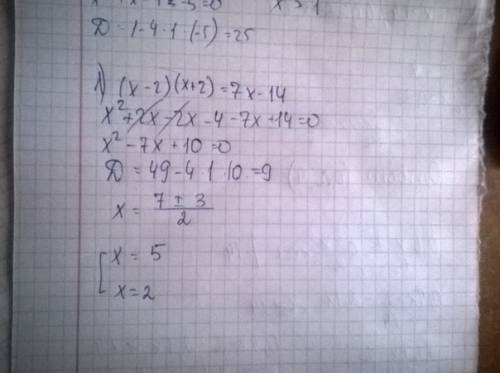 D = 1-4·1·(-5)=25
1) (x-2)(x+2)=7x-14
x²+2x-2x-4-7x+14=0
x²-7x+10=0
D = 49-4·1·10=9
x = 7±3/2
[x = 5
x=2